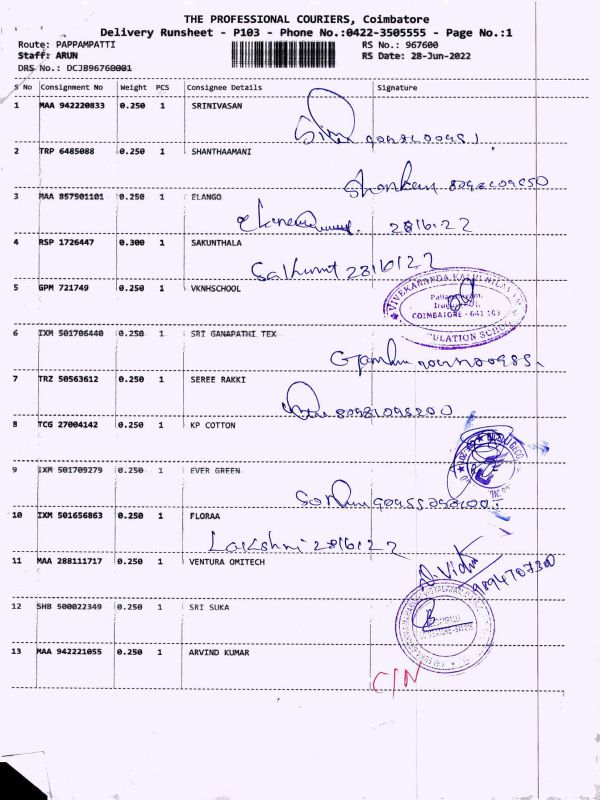 THE PROFESSIONAL COURIERS, Coimbatore
Delivery Runsheet - P103 - Phone No.:0422-3505555 - Page No.:1
Route: PAPPAMPATTI RS No.: 967600
Staff: ARUN RS Date: 28-Jun-2022
DRS No.: DCJB96760001
S No Consignment No Weight PCS Consignee Details Signature
1 MAA 942220833 0.250 1 SRINIVASAN
2 TRP 6485088 0.250 1 SHANTHAAMANI
3 MAA 857501101 0.250 1 ELANGO
28/6/22
4 RSP 1726447 0.300 1 SAKUNTHALA
28/6/22
5 GPM 721749 0.250 1 VKNHSCHOOL
COIMBATORE - 641 103
6 IXM 501706440 0.250 1 SRI GANAPATHI TEX
7 TRZ 50563612 0.250 1 SEREE RAKKI
8 TCG 27004142 0.250 1 KP COTTON
9 IXM 501709279 0.250 1 EVER GREEN
10 IXM 501656863 0.250 1 FLORAA
Lakshmi 28/6/22
11 MAA 288111717 0.250 1 VENTURA OMITECH
12 SHB 500022349 0.250 1 SRI SUKA
13 MAA 942221055 0.250 1 ARVIND KUMAR
C/N